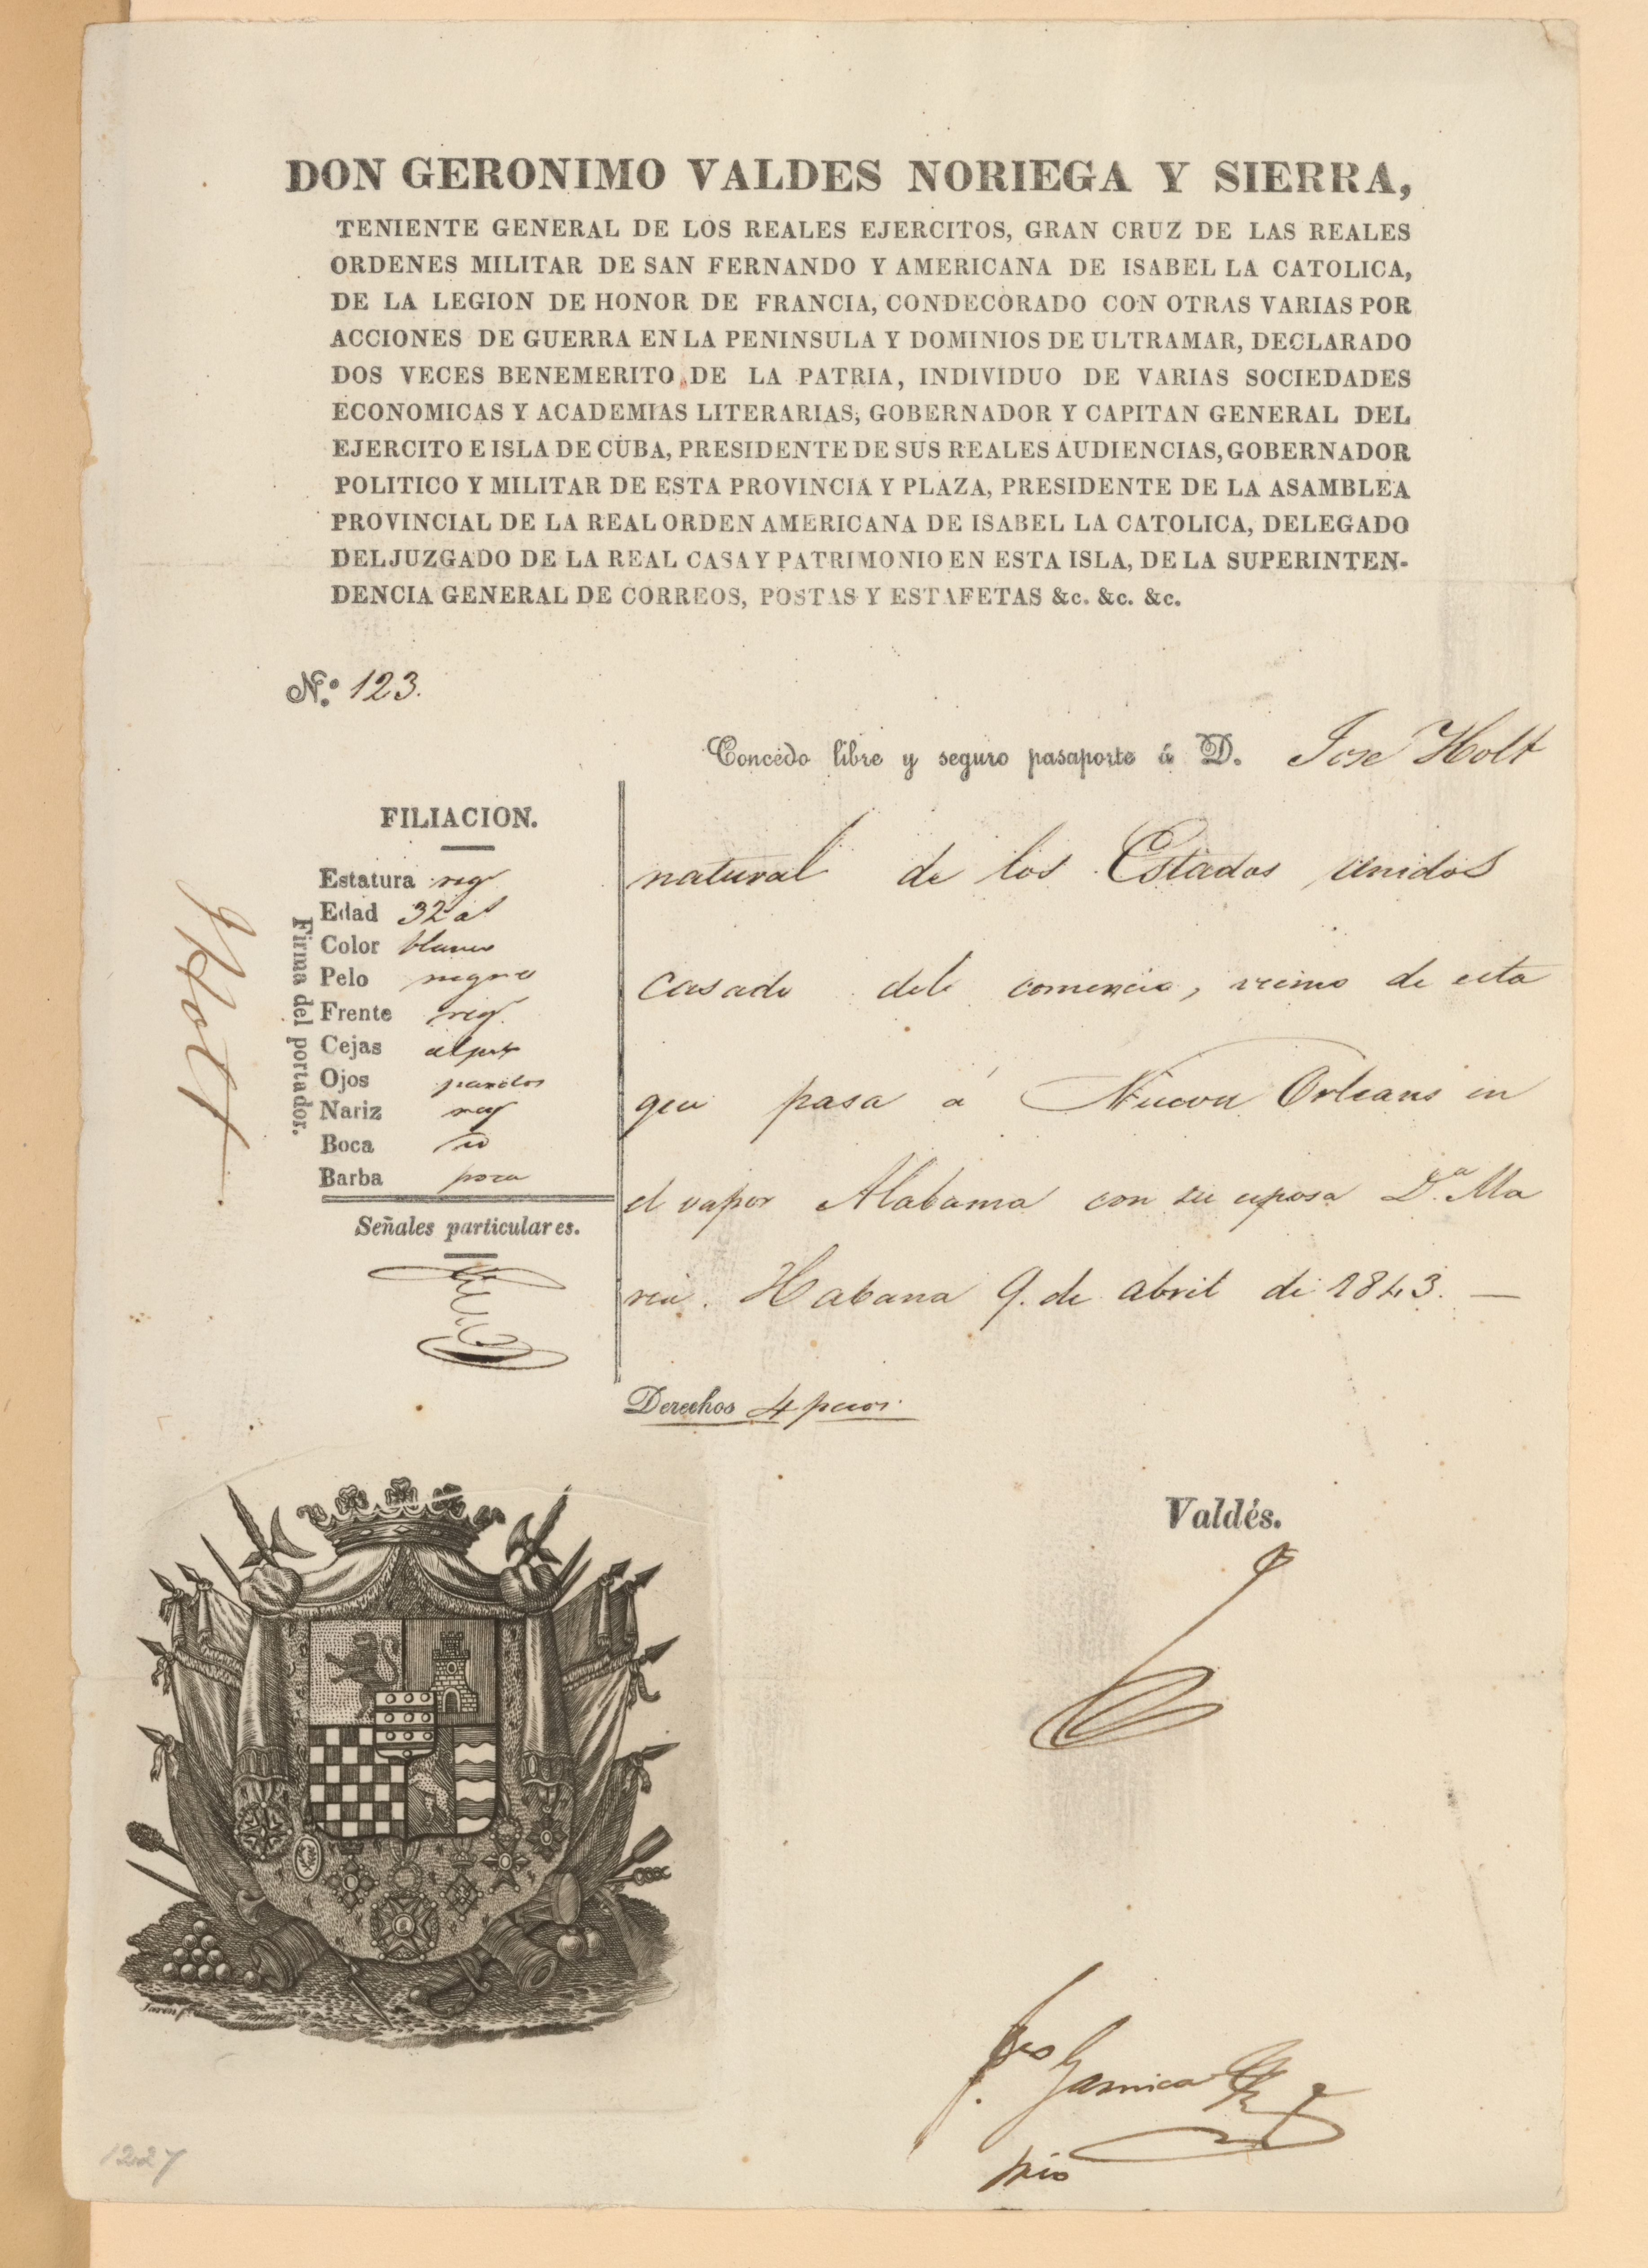 DON GERONIMO VALDES NORIEGA Y SIERRA,
TENIENTE GENERAL DE LOS REALES EJERCITOS, GRAN CRUZ DE LAS REALES
ORDENES MILITAR DE SAN FERNANDO Y AMERICANA DE ISABEL LA CATOLICA,
DE LA LEGION DE HONOR DE FRANCIA, CONDECORADO CON OTRAS VARIAS POR
ACCIONES DE GUERRA EN LA PENINSULA Y DOMINIOS DE ULTRAMAR, DECLARADO
DOS VECES BENEMERITO DE LA PATRIA, INDIVIDUO DE VARIAS SOCIEDADES
ECONOMICAS Y ACADEMIAS LITERARIAS, GOBERNADOR Y CAPITAN GENERAL DEL
EJERCITO E ISLA DE CUBA, PRESIDENTE DE SUS REALES AUDIENCIAS, GOBERNADOR
POLITICO Y MILITAR DE ESTA PROVINCIA Y PLAZA, PRESIDENTE DE LA ASAMBLEA
PROVINCIAL DE LA REAL ORDEN AMERICANA DE ISABEL LA CATOLICA, DELEGADO
DEL JUZGADO DE LA REAL CASA Y PATRIMONIO EN ESTA ISLA, DE LA SUPERINTEN-
DENCIA GENERAL DE CORREOS, POSTAS Y ESTAFETAS &c. &c. &c.
N.º 123.
Concedo libre y seguro pasaporte á D. Jose Holt
natural de los Estados unidos
casado del comercio, vecino de esta
que pasa á Nueva Orleans en
el vapor Alabama con su esposa D.ª Ma
ria. Habana 9. de abril de 1843. —
Derechos 4 pesos.
FILIACION.
Estatura reg
Edad 32 a.s
Color blanco
Pelo negro
Frente reg.
Cejas al pelo
Ojos pardos
Nariz reg
Boca id
Barba poca
Firma del portador.
J Holt
Señales particulares.
Valdés.
Garnica
1227